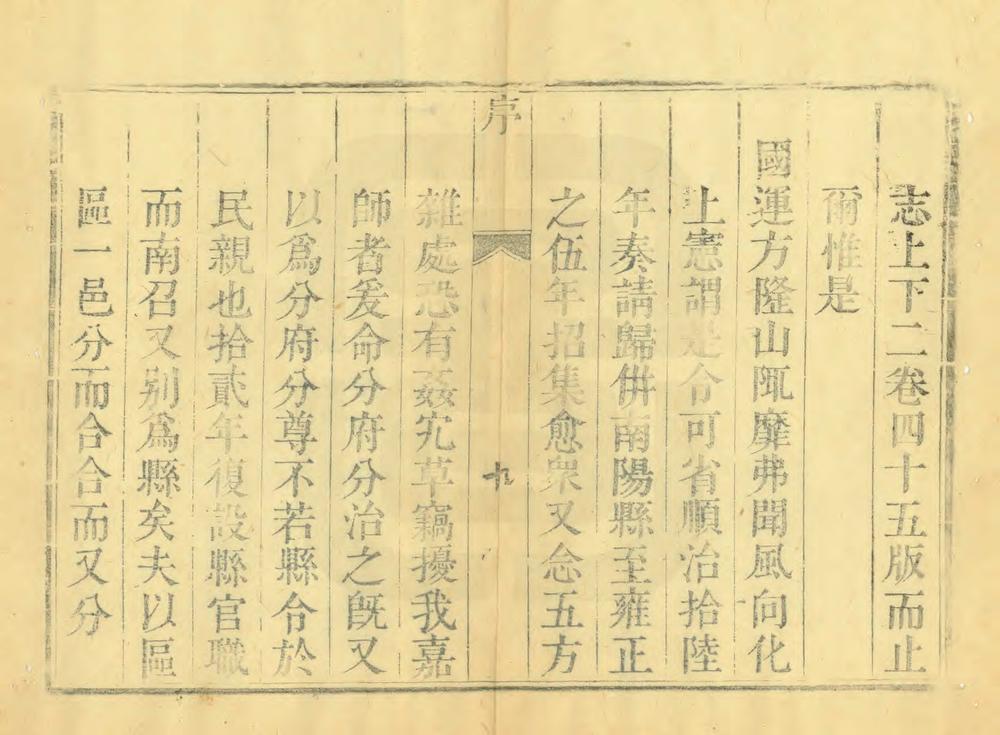 志上下二卷四十五版而止
爾惟是
國運方隆山陬靡弗聞風向化
上憲謂是令可省順治拾陸
年奏請歸併南陽縣至雍正
之伍年招集愈衆又念五方
序
九
雜處恐有姦宄草竊擾我嘉
師者爰命分府分治之旣又
以爲分府分尊不若縣令於
民親也拾貳年復設縣官職
而南召又别爲縣矣夫以區
區一邑分而合合而又分